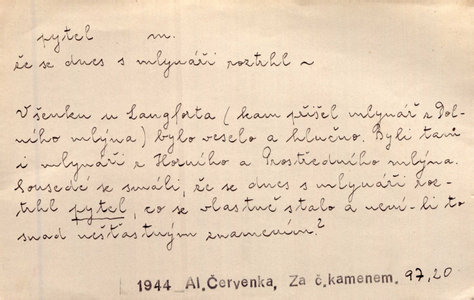 pytel m.
že se dnes s mlynáři roztrhl ~
V šenku u Langforta (kam přišel mlynář z Dol-
ního mlýna) bylo veselo a hlučno. Byli tam
i mlynáři z Horního a Prostředního mlýna.
Sousedé se smáli, že se dnes s mlynáři roz-
trhl pytel, co se vlastně stalo a není-li to
snad nešťastným znamením?
1944 Al. Červenka, Za č. kamenem. 97,20